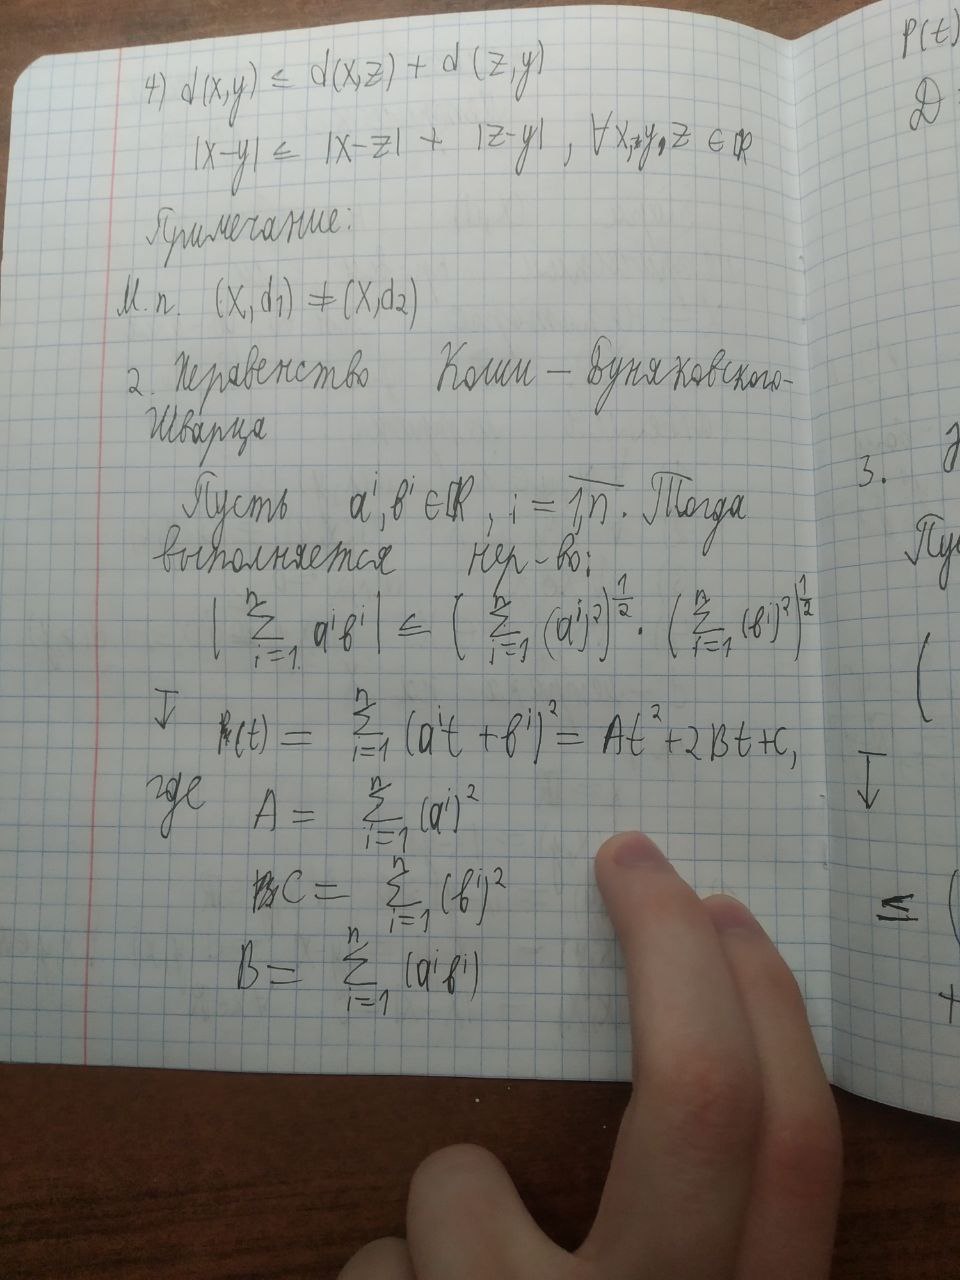 4) d(x,y) ≤ d(x,z) + d(z,y)
|x-y| ≤ |x-z| + |z-y|, ∀x,y,z ∈ ℝ
Примечание:
М.п. (X,d₁) ≠ (X,d₂)
2. Неравенство Коши – Буняковского-
Шварца
Пусть aⁱ, bⁱ ∈ ℝ, i = \overline{1,n}. Тогда
выполняется нер-во:
|∑_{i=1}^{n} aⁱbⁱ| ≤ (∑_{i=1}^{n} (aⁱ)²)^{1/2} · (∑_{i=1}^{n} (bⁱ)²)^{1/2}
↓ P(t) = ∑_{i=1}^{n} (aⁱt + bⁱ)² = At² + 2Bt + C,
где A = ∑_{i=1}^{n} (aⁱ)²
C = ∑_{i=1}^{n} (bⁱ)²
B = ∑_{i=1}^{n} (aⁱbⁱ)
P(t)
D
3.
(
↓
≤ (
+